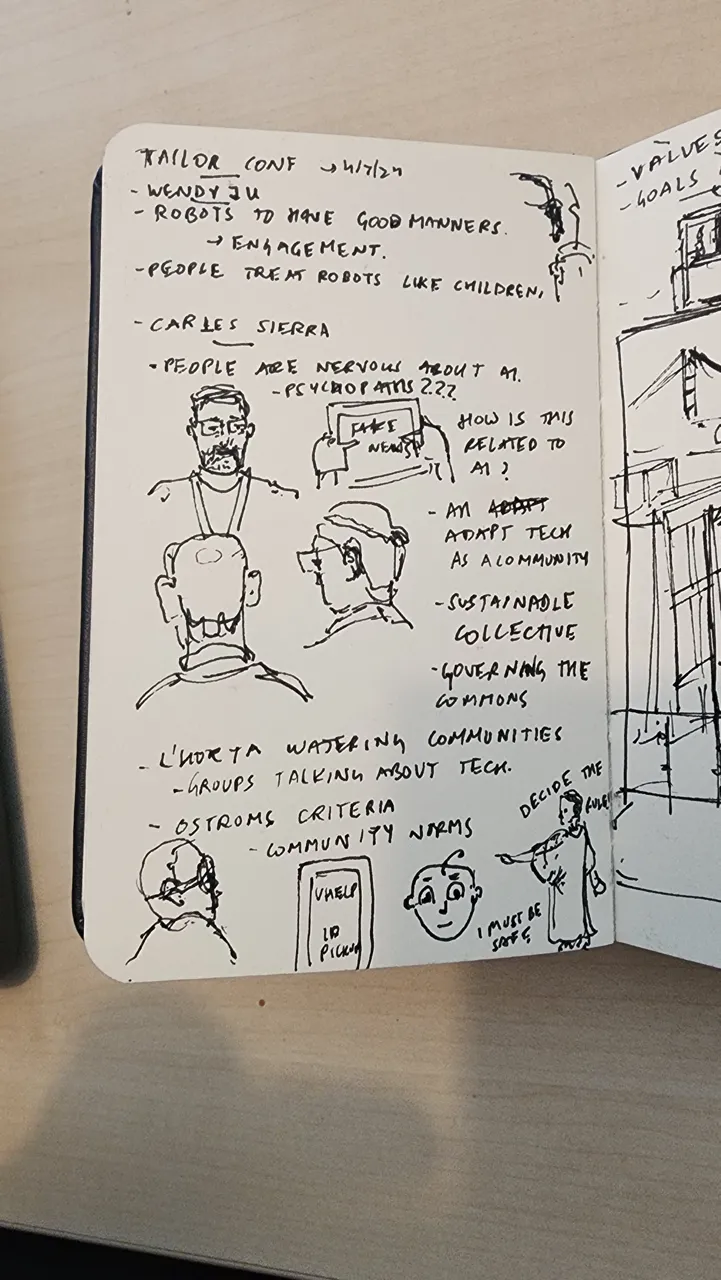 TAILOR CONF → 4/7/24
- WENDY JU
- ROBOTS TO HAVE GOOD MANNERS.
→ ENGAGEMENT.
- PEOPLE TREAT ROBOTS LIKE CHILDREN,
- CARLES SIERRA
- PEOPLE ARE NERVOUS ABOUT AI.
- PSYCHOPATHS???
FAKE
NEWS
HOW IS THIS
RELATED TO
AI?
- AN ADAPT
ADAPT TECH
AS A COMMUNITY
- SUSTAINABLE
COLLECTIVE
- GOVERNING THE
COMMONS
- L'HORTA WATERING COMMUNITIES
- GROUPS TALKING ABOUT TECH.
- OSTROMS CRITERIA
- COMMUNITY NORMS
DECIDE THE
RULE!
VHELP
PICKUP
I MUST BE
SAFE
- VALUES
- GOALS